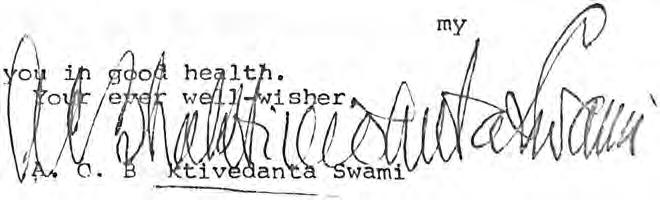 my
you in good health.
Your ever well-wisher,
A C Bhaktivedanta Swami
A. C. B ktivedanta Swami